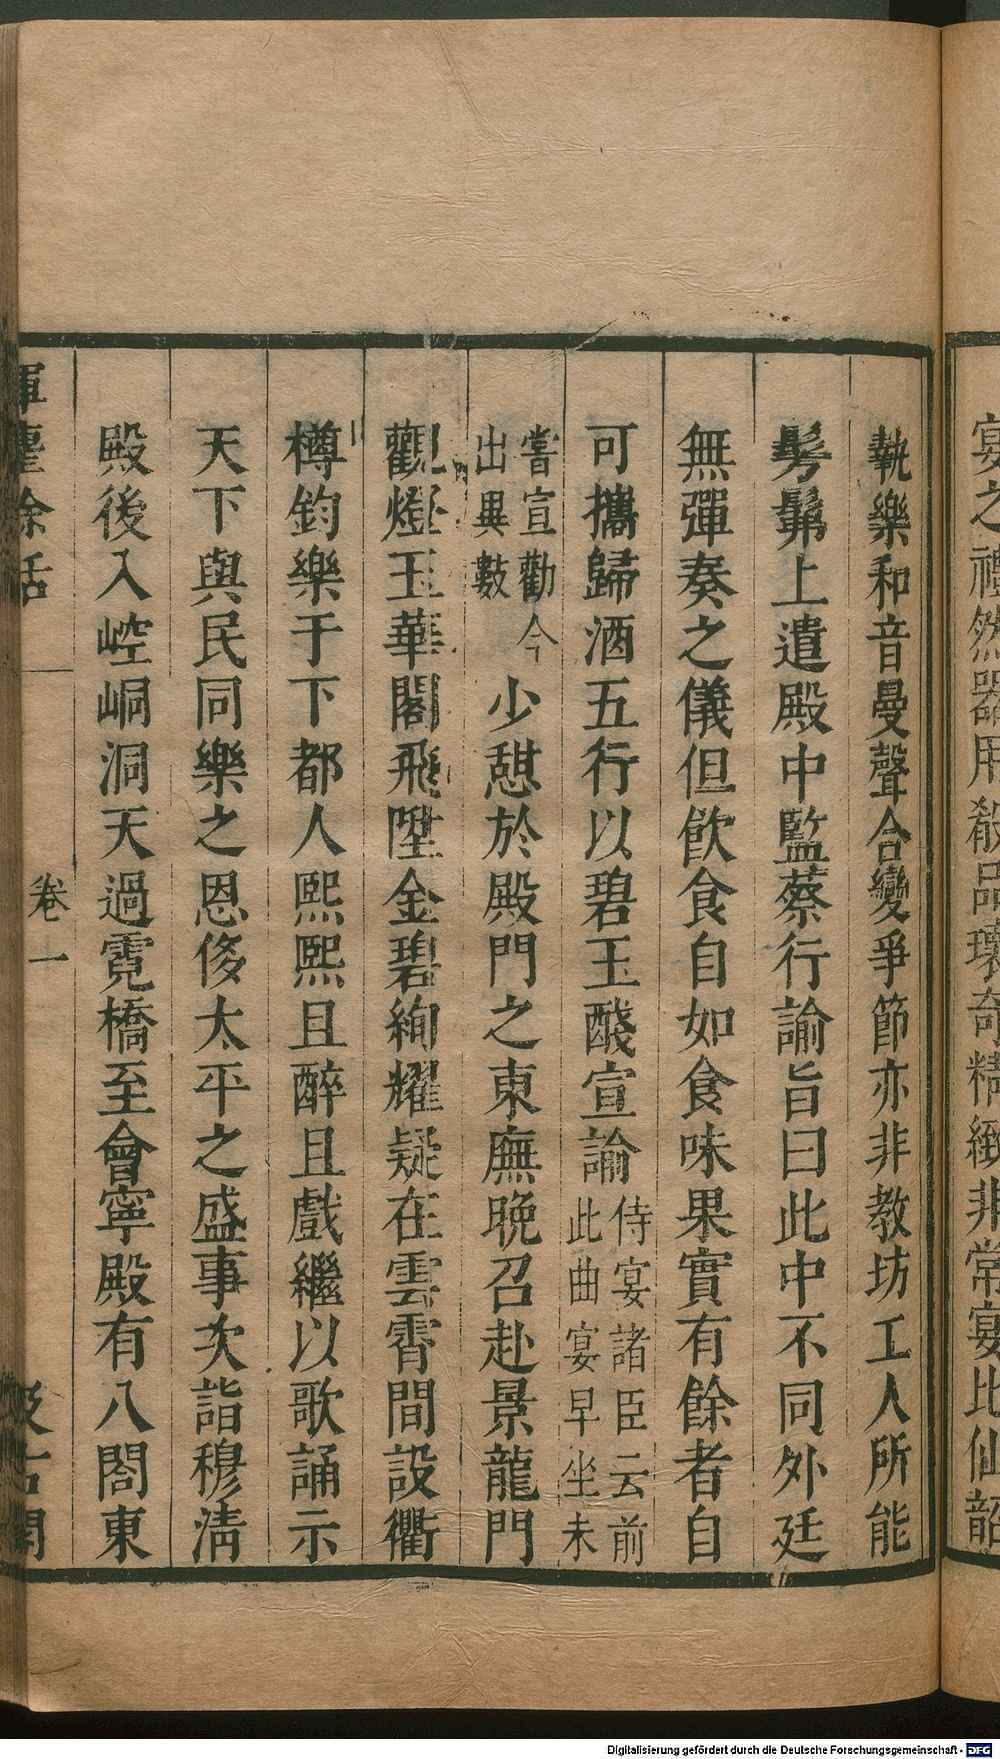 宴之禮然器用殽品瓌奇精緻非常宴比仙韶
執樂和音曼聲合變爭節亦非教坊工人所能
髣髴上遣殿中監蔡行諭旨曰此中不同外廷
無彈奏之儀但飲食自如食味果實有餘者自
可攜歸酒五行以碧玉醆宣諭侍宴諸臣云前此曲宴早坐未
嘗宣勸今出異數少憩於殿門之東廡晚召赴景龍門
觀燈玉華閣飛陞金碧絢耀疑在雲霄間設衢
樽鈞樂于下都人熙熙且醉且戲繼以歌誦示
天下與民同樂之恩侈太平之盛事次詣穆清
殿後入崆峒洞天過霓橋至會寧殿有八閣東
揮麈餘話 卷一 汲古閣
Digitalisierung gefördert durch die Deutsche Forschungsgemeinschaft - DFG